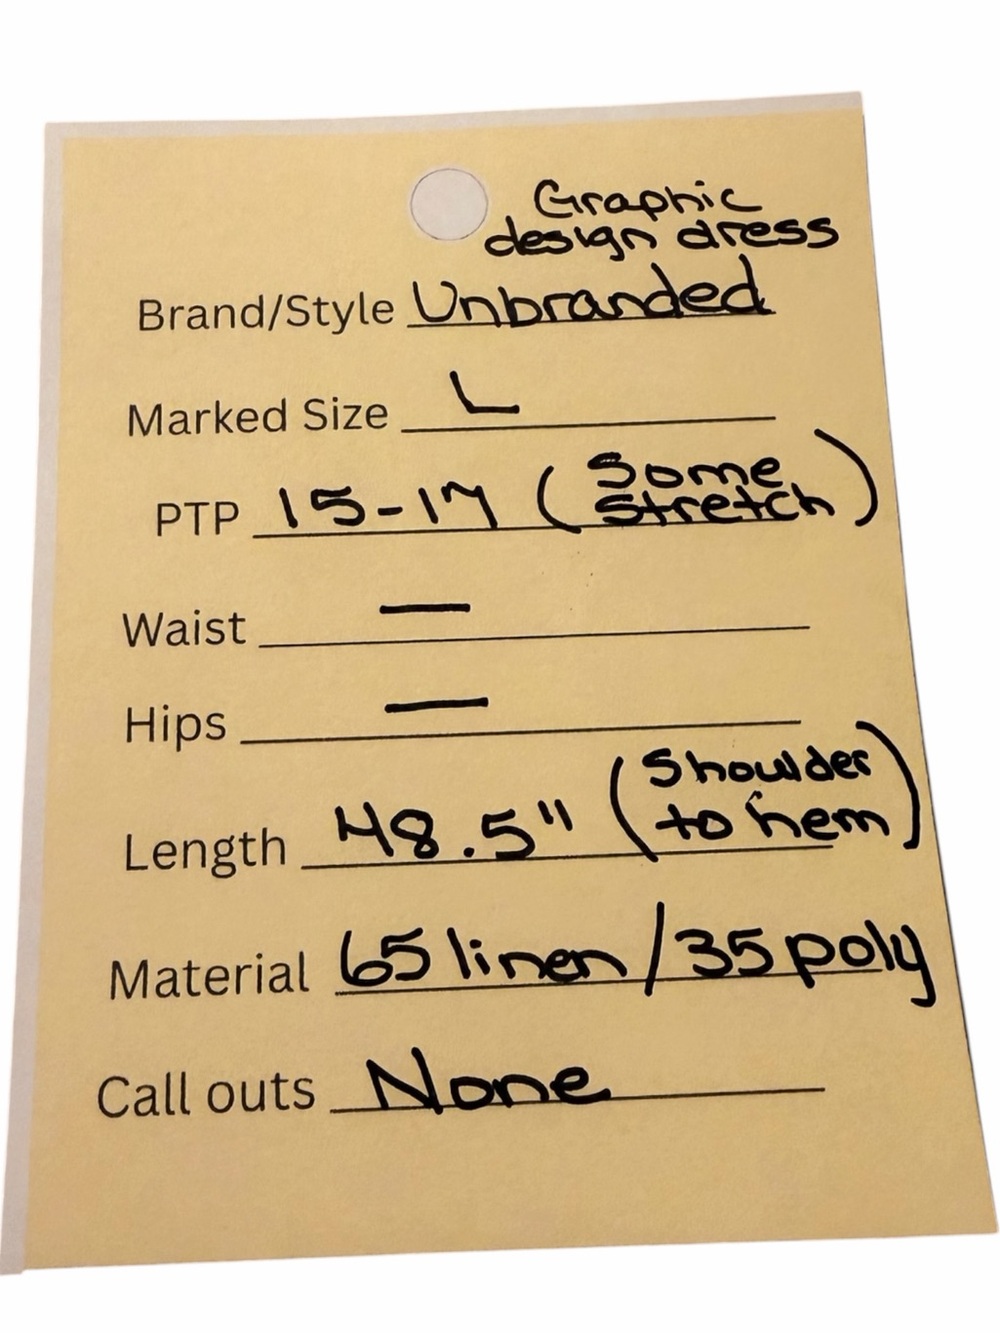 Graphic
design dress
Brand/Style Unbranded
Marked Size L
PTP 15-17 (Some stretch)
Waist —
Hips —
Length 48.5" (Shoulder to hem)
Material 65 linen/35 poly
Call outs None